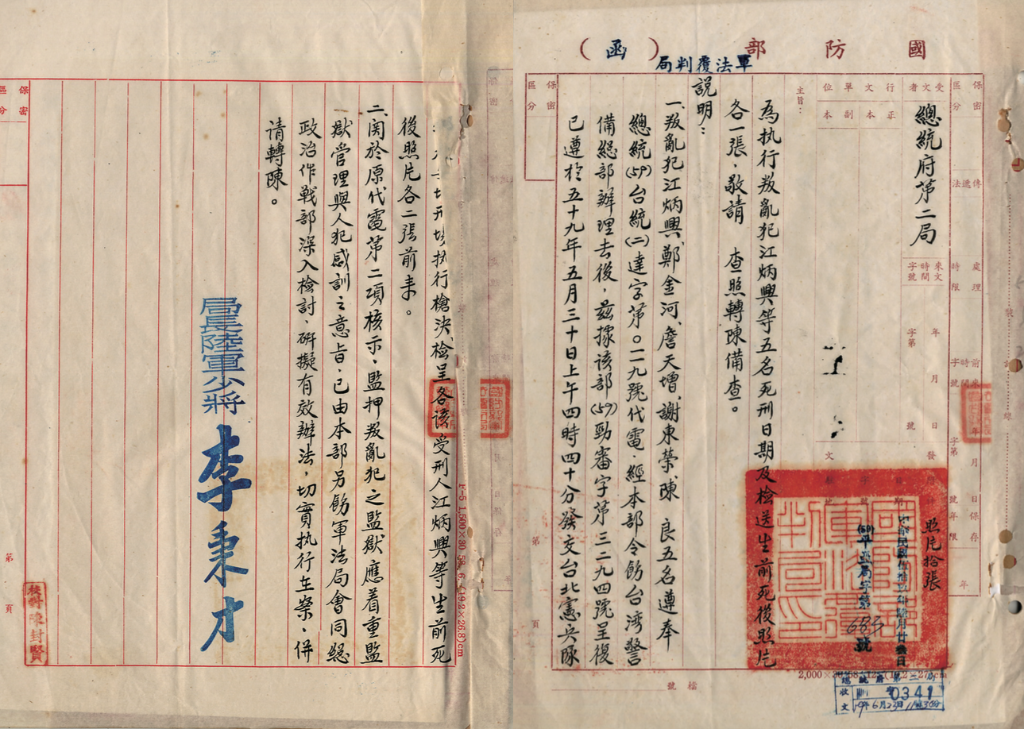 國防部（函）
軍法覆判局
總統府第二局
受文者
保密區分
行文
正本
單位
副本
主旨：
為执行叛亂犯江炳興等五名死刑日期及检送生前死後照片
各一張，敬請　查照轉陳備查。
說明：
一、叛亂犯江炳興、鄭金河、詹天增、謝東榮、陳　良五名遵奉
總統(59)台統(二)達字第〇一九號代電，經本部令飭台湾警
備總部辦理去後，茲據該部(59)勁審字第三二九四號呈復
已遵於五十九年五月三十日上午四時四十分發交台北憲兵隊
照片拾張
683
號
0341
执行槍決，检呈各該受刑人江炳興等生前死
後照片各二張前来。
二、関於原代電第二項核示，監押叛亂犯之監獄應着重監
獄管理與人犯感訓之意旨，已由本部另飭軍法局會同總
政治作戰部深入檢討，研擬有效辦法，切實执行在案，併
请轉陳。
局長陸軍少將 李秉才
保密區分
第　頁